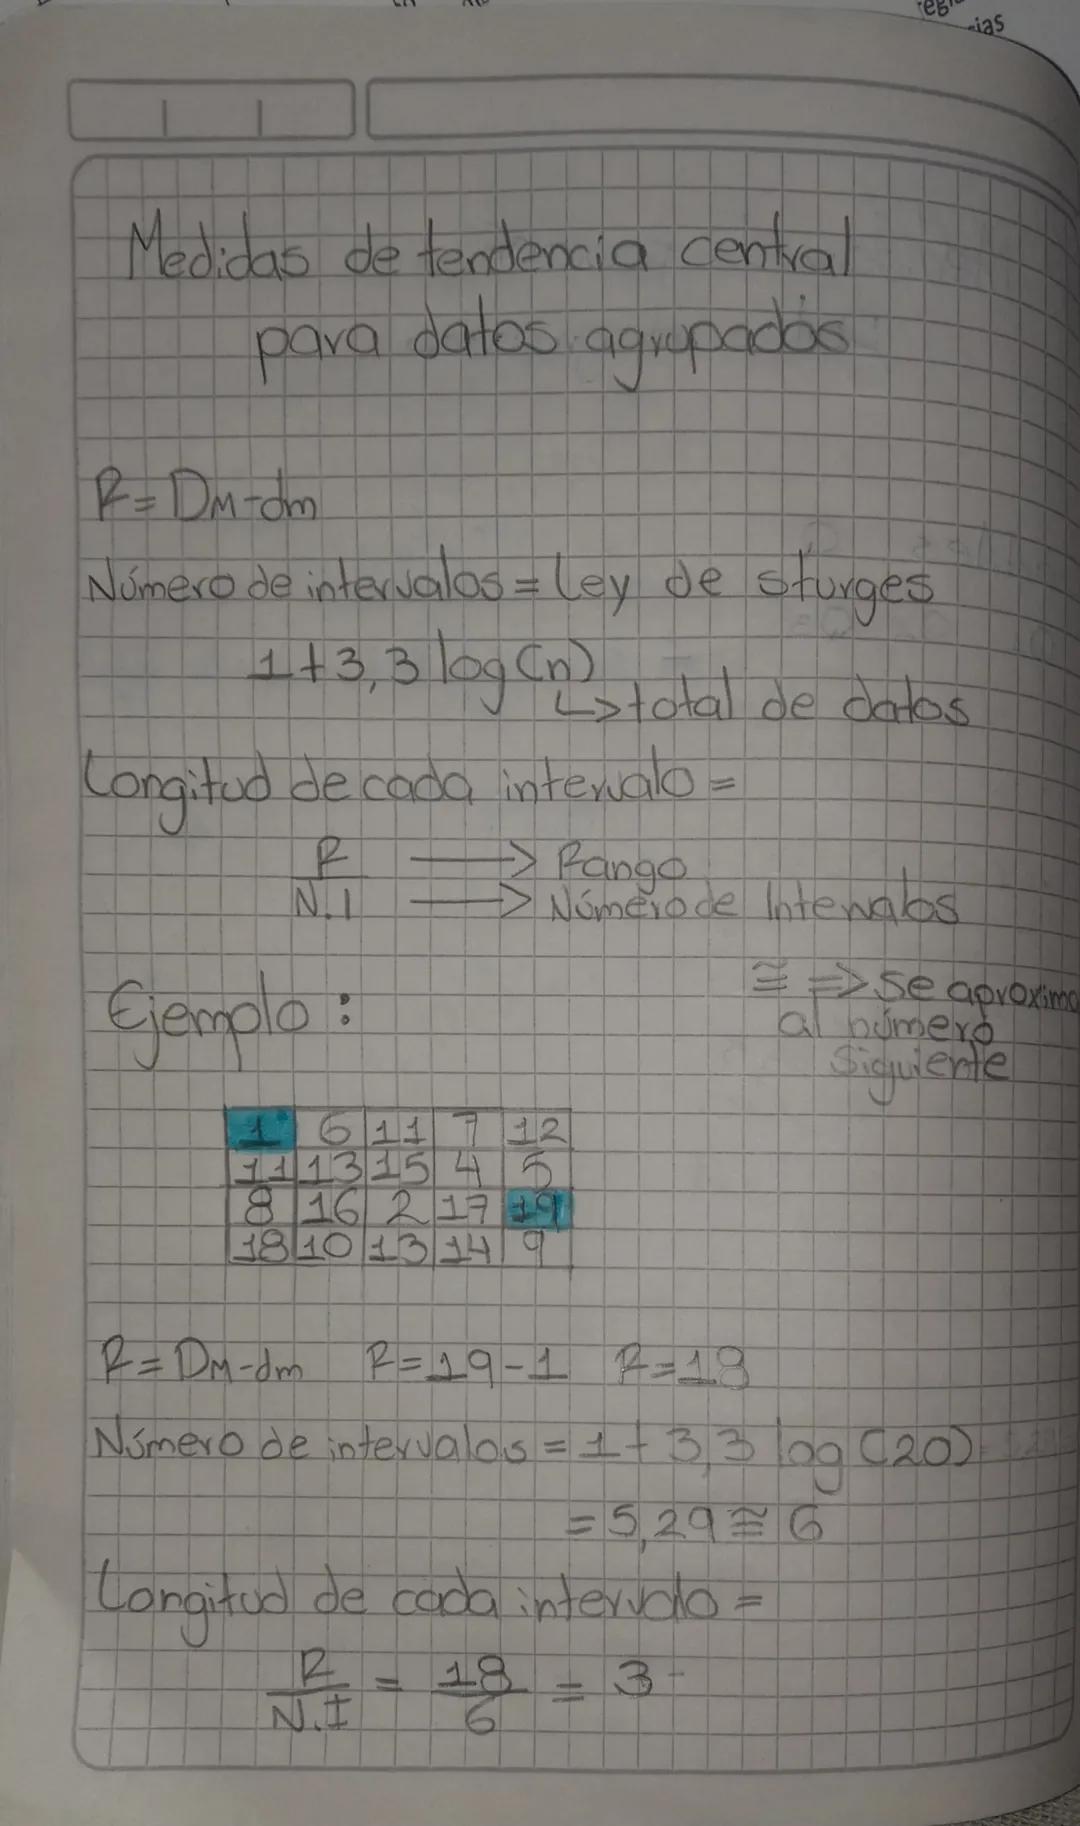 ias
Medidas de tendencia central
para datos agrupados
R = DM-dm
Número de intervalos = Ley de sturges
1+3,3 log (n)
↳ total de datos
Longitud de cada intervalo =
R → Rango
N.I → Número de Intervalos
≅ => se aproxima
al número
siguiente
Ejemplo :
1 6 11 7 12
11 13 15 4 5
8 16 2 17 19
18 10 13 14 9
R = DM-dm R=19-1 R=18
Número de intervalos = 1+3,3 log (20)
= 5,29 ≅ 6
Longitud de cada intervalo =
R/N.I = 18/6 = 3